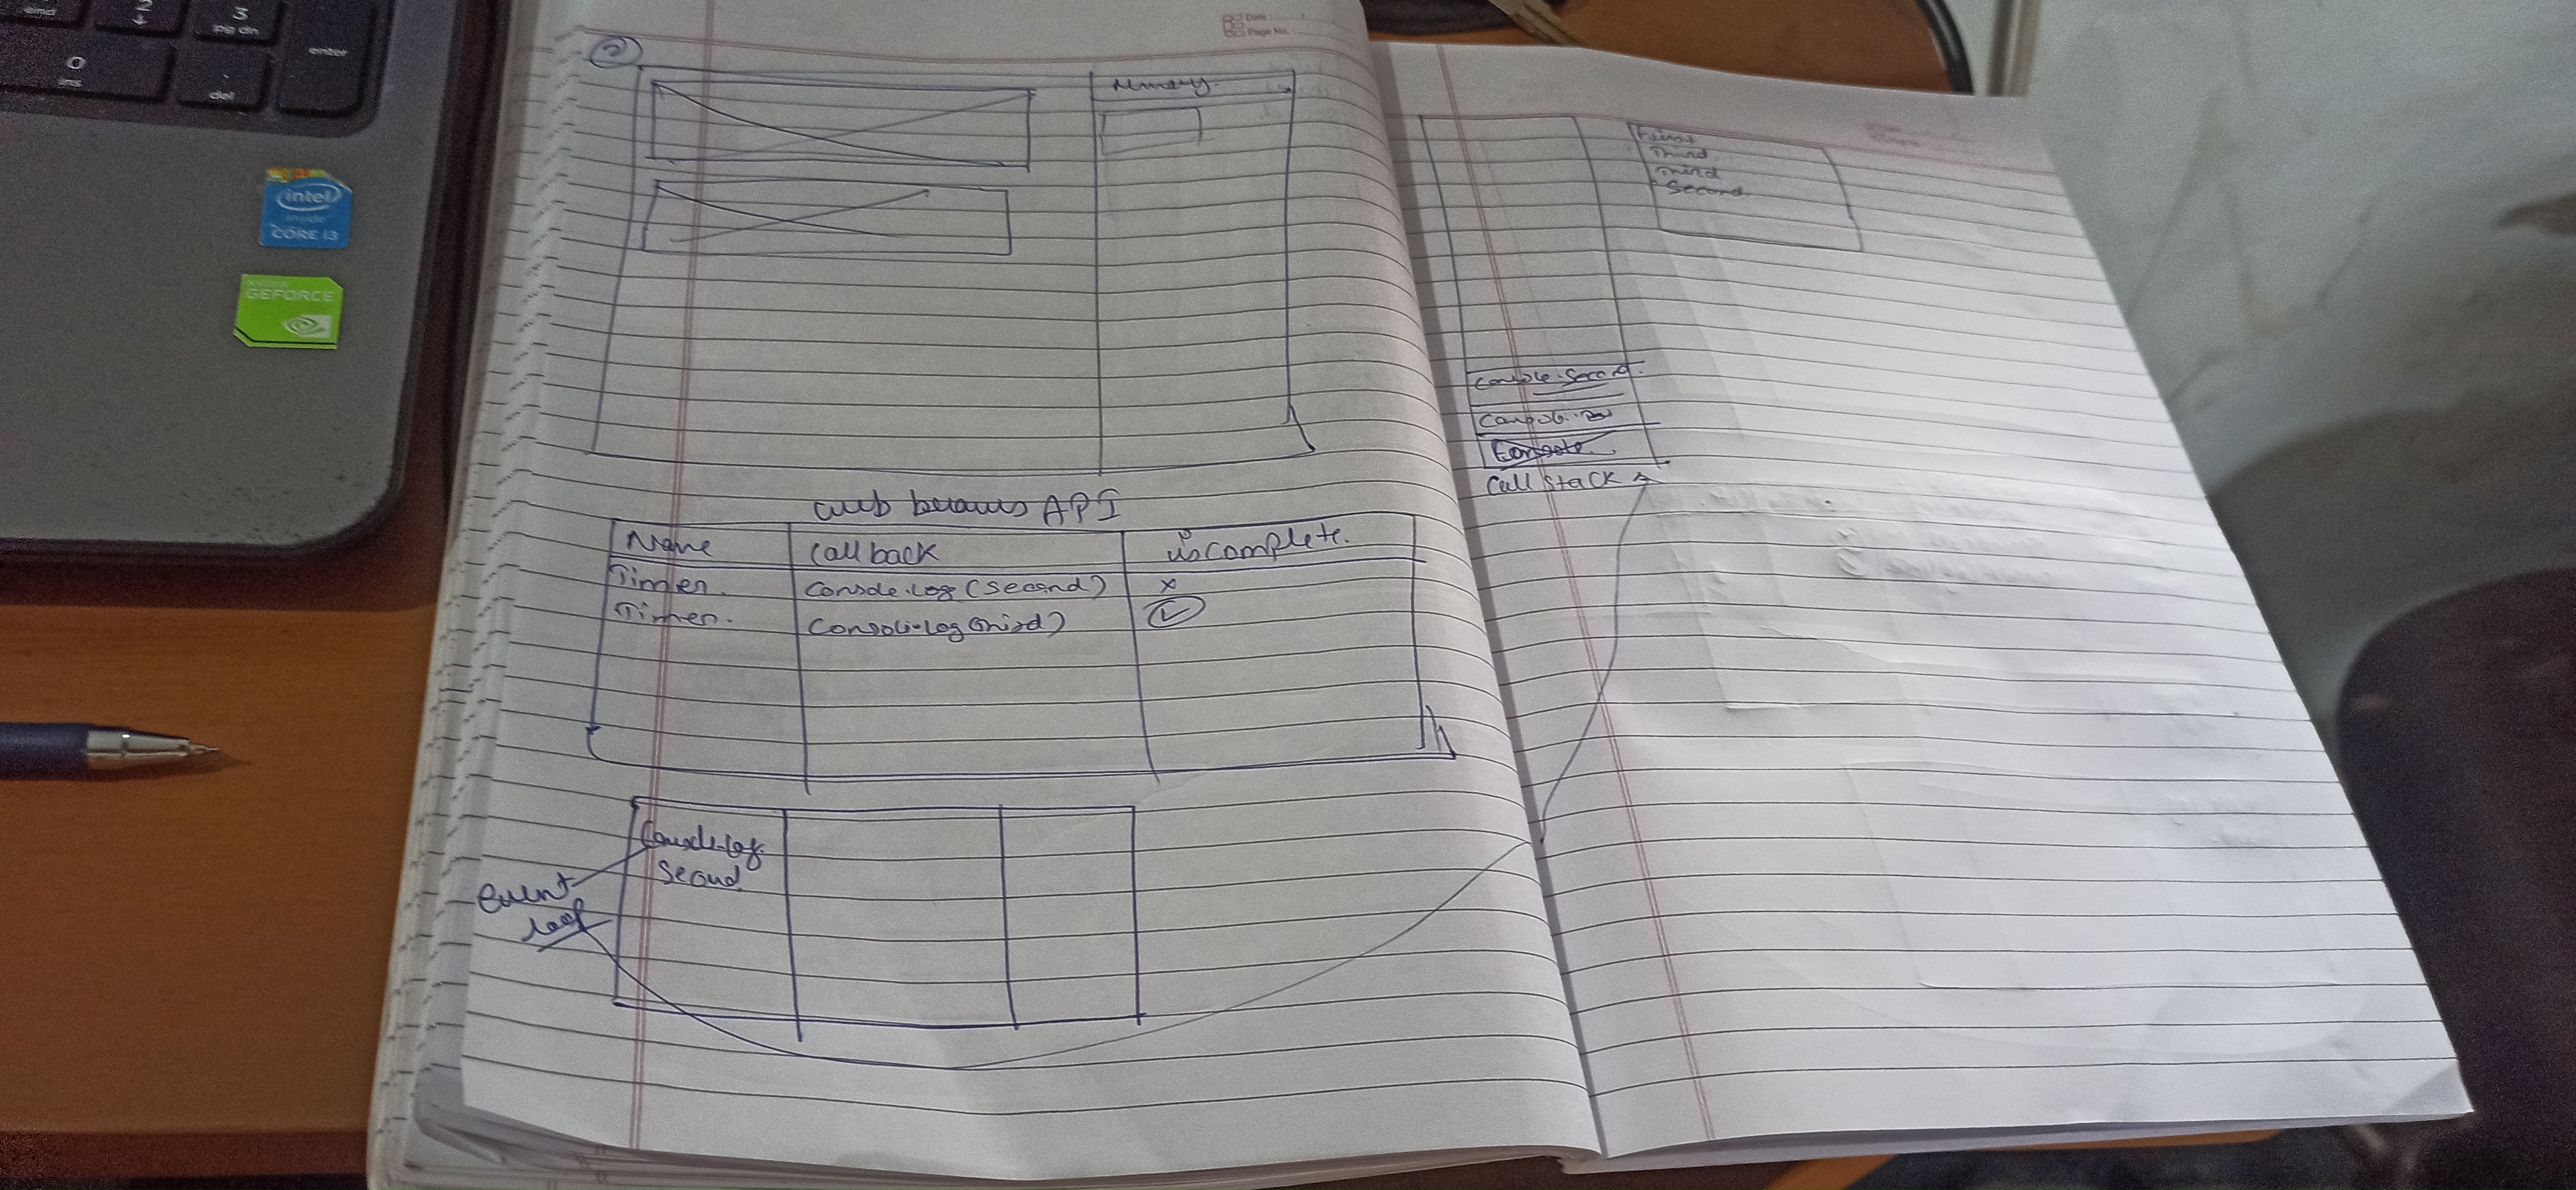 end
2
↓
3
pg dn
enter
0
ins
.
del
intel
inside
CORE i3
NVIDIA
GEFORCE
Date
Page No.
2
Memory.
API
Name
Call back
is complete.
Timer.
Console.log (Second)
x
Timer.
Console.log
event
loop
Console.log
Second
First
Third
Third
Second
Console.Second.
Console
Call Stack